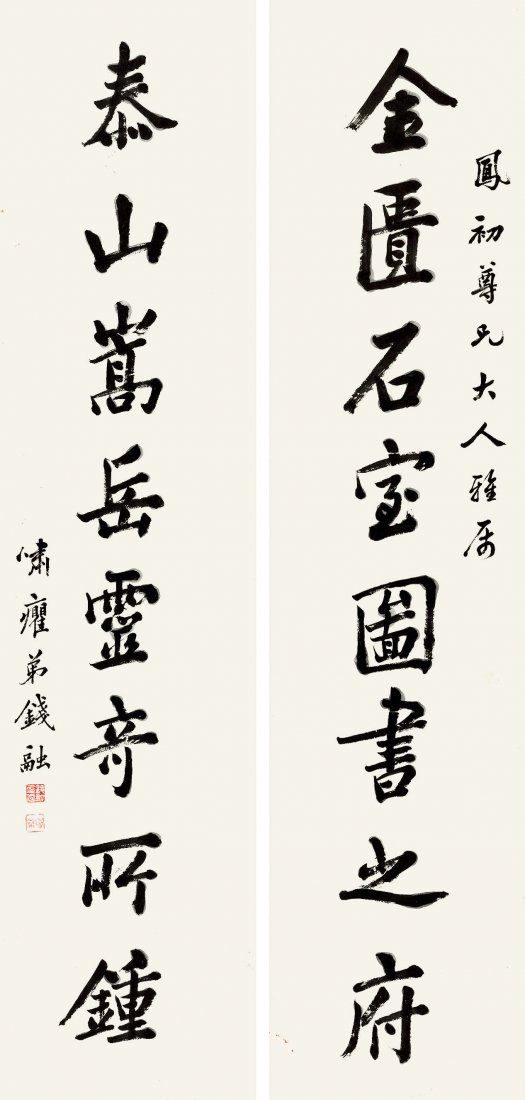 鳳初尊兄大人雅属
金匱石室圖書之府
泰山嵩岳靈奇所鍾
嘯癯弟錢融